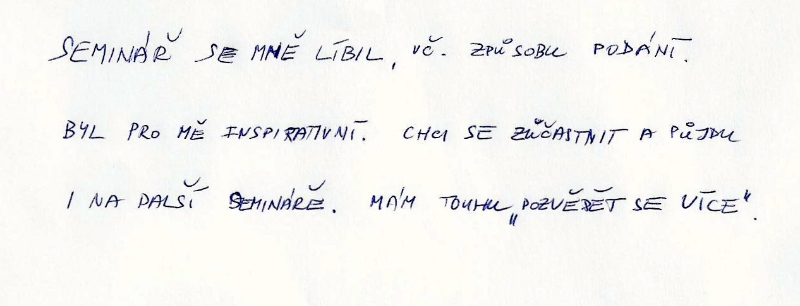 SEMINÁŘ SE MNĚ LÍBIL, VČ. ZPŮSOBU PODÁNÍ.
BYL PRO MĚ INSPIRATIVNÍ. CHCI SE ZÚČASTNIT A PŮJDU
I NA DALŠÍ SEMINÁŘE. MÁM TOUHU „POZVĚDĚT SE VÍCE".